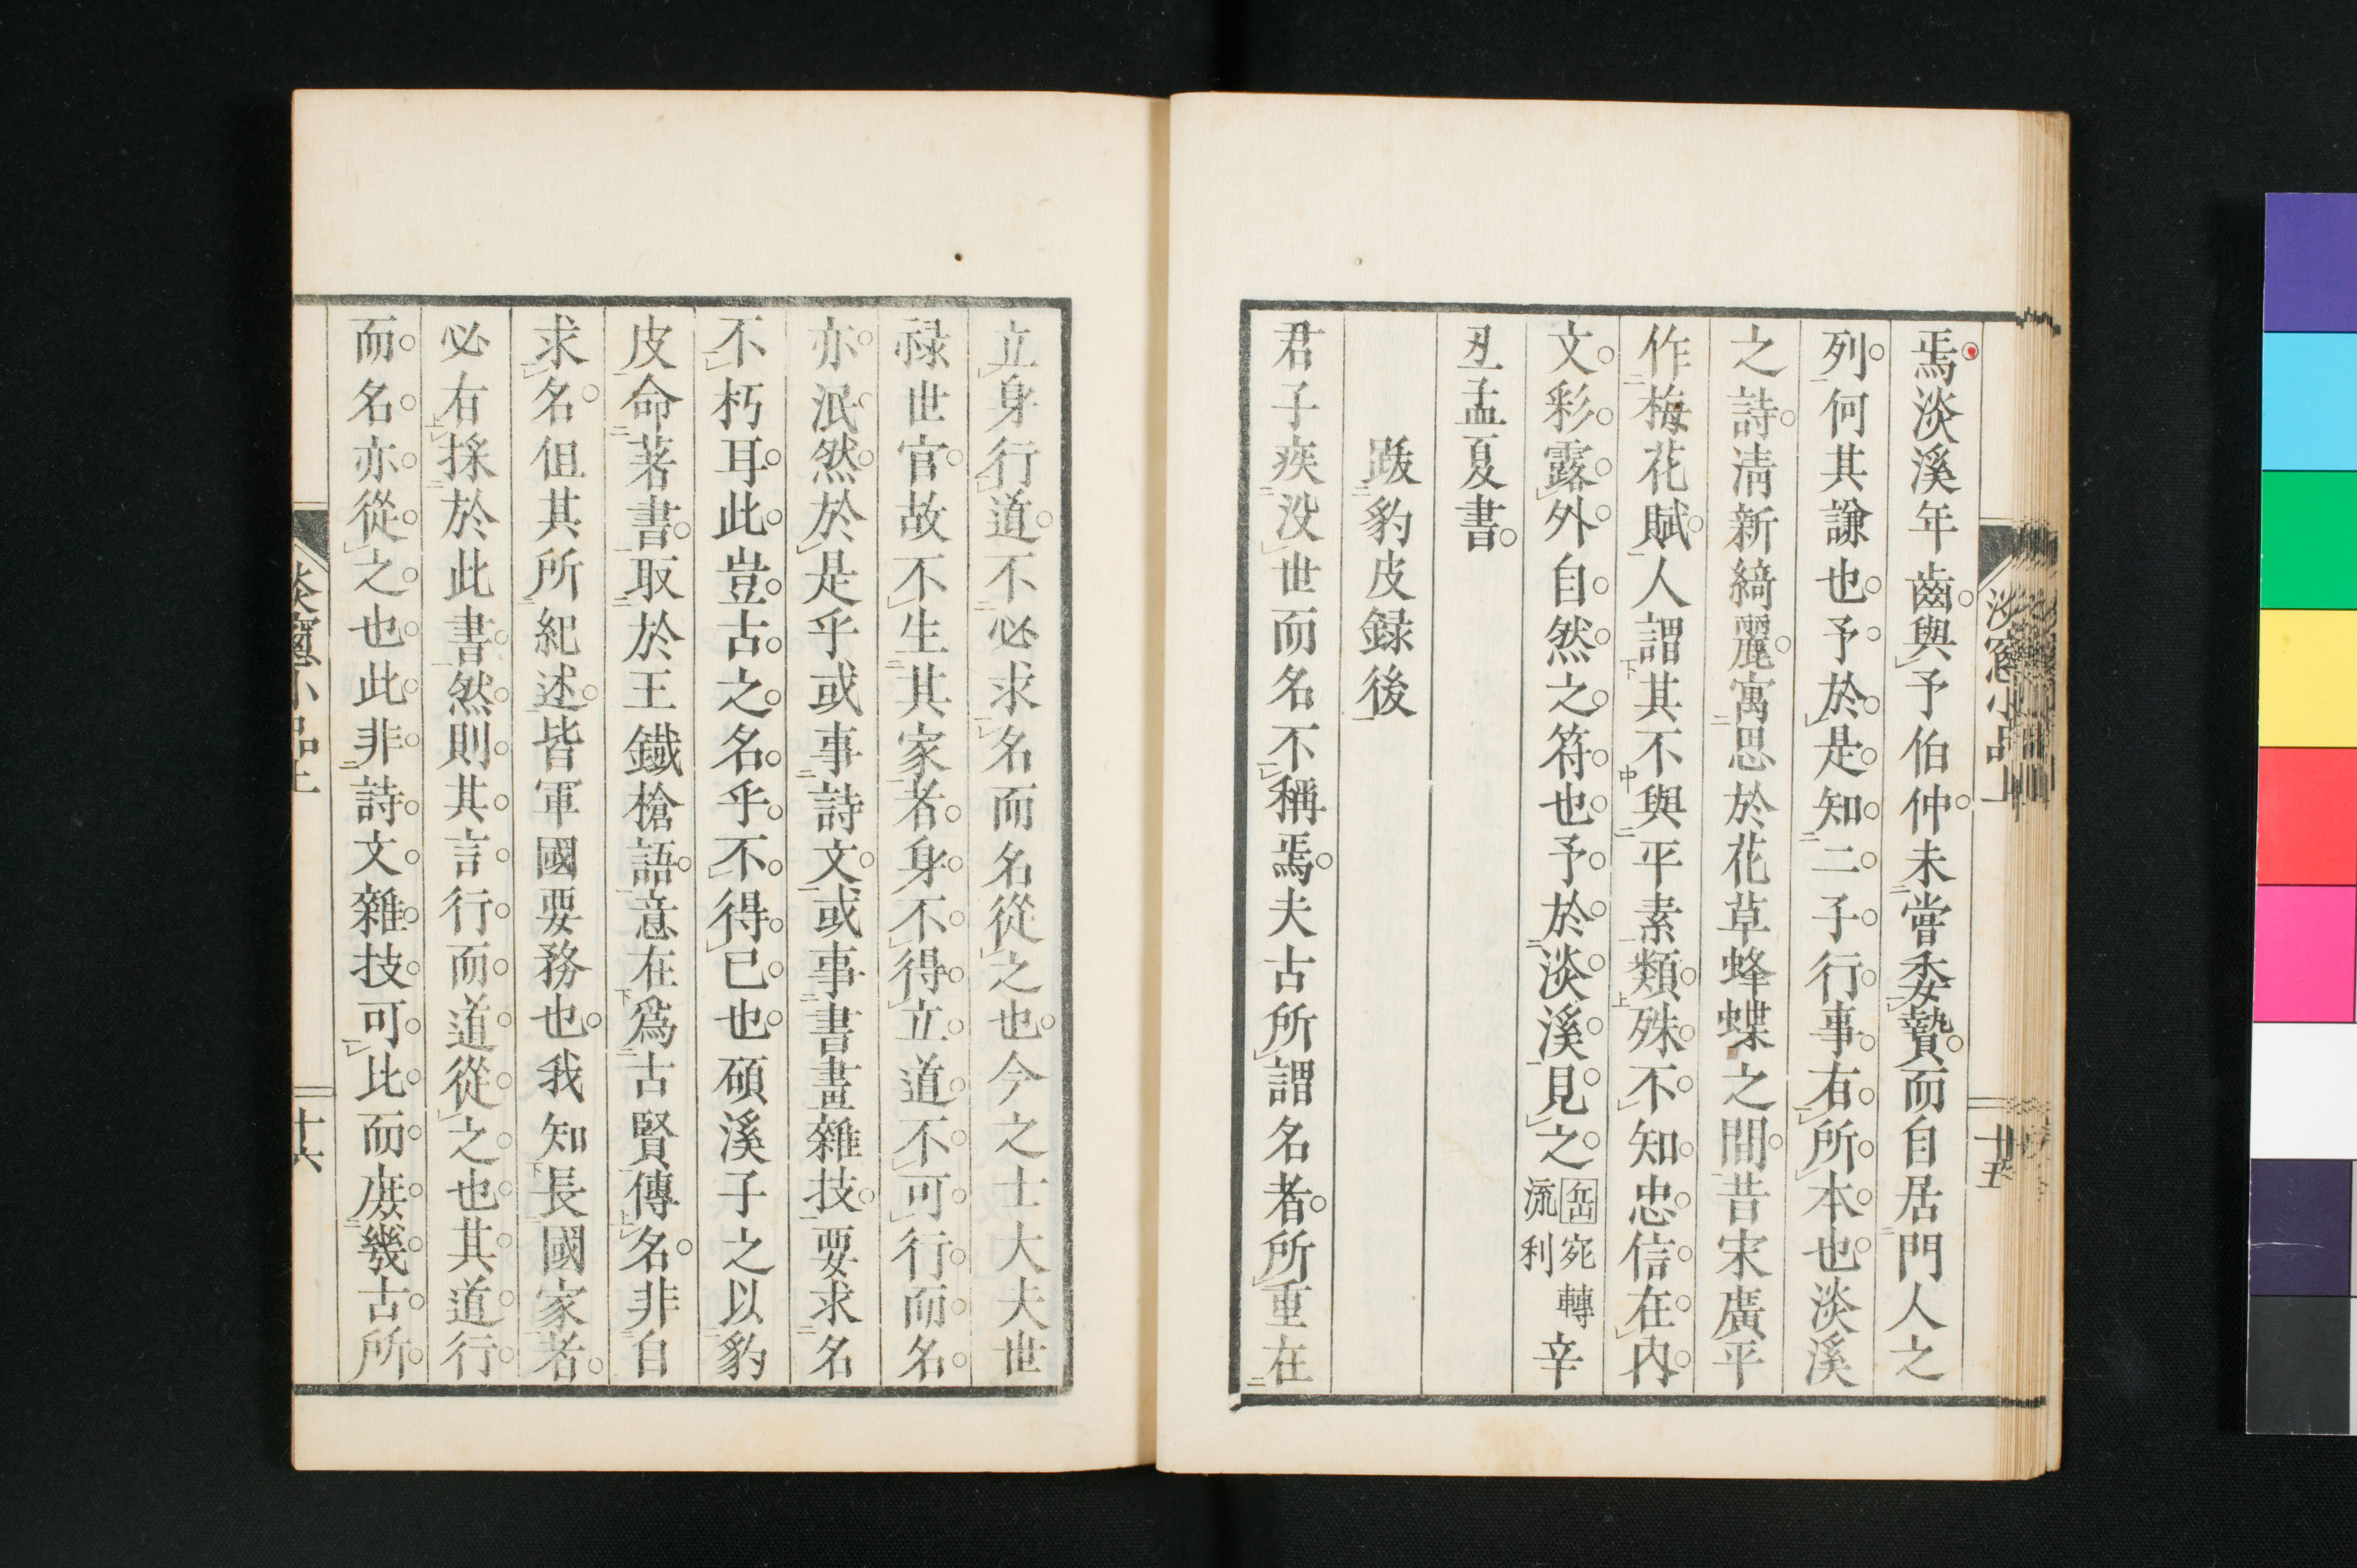 焉淡溪年齒與予伯仲未嘗委贄而自居門人之
列何其謙也予於是知二子行事有所本也淡溪
之詩清新綺麗寓思於花草蜂蝶之間昔宋廣平
作梅花賦人謂其不與平素類殊不知忠信在內
文彩露外自然之符也予於淡溪見之
宛轉
流利
辛
丑孟夏書
跋豹皮録後
君子疾没世而名不稱焉夫古所謂名者所重在
十五
立身行道不必求名而名從之也今之士大夫世
禄世官故不生其家者身不得立道不可行而名
亦泯然於是乎或事詩文或事書畫雜技要求名
不朽耳此豈古之名乎不得已也碩溪子之以豹
皮命著書取於王鐵槍語意在為古賢傳名非自
求名但其所紀述皆軍國要務也我知長國家者
必有採於此書然則其言行而道從之也其道行
而名亦從之也此非詩文雜技可比而庶幾古所
小品上
十六